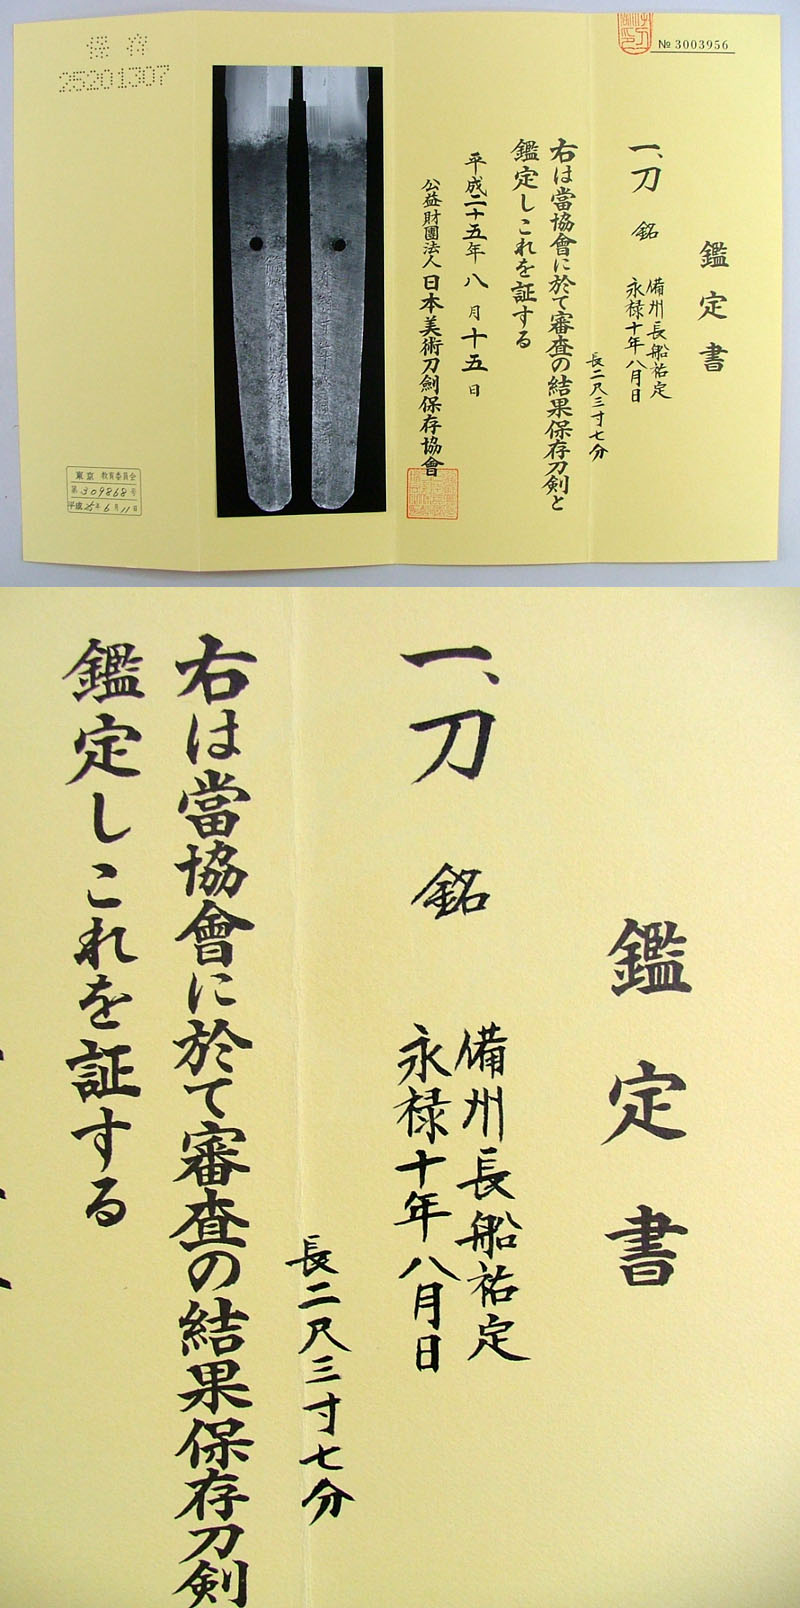 № 3003956
鑑定書
一、刀 銘 備州長船祐定
永禄十年八月日
長二尺三寸七分
右は當協會に於て審査の結果保存刀剣と
鑑定しこれを証する
平成二十五年八月十五日
公益財團法人日本美術刀劍保存協會
保存
25201307
東京 教育委員会
第309868号
平成25年6月11日
鑑定書
一、刀 銘 備州長船祐定
永禄十年八月日
長二尺三寸七分
右は當協會に於て審査の結果保存刀剣
鑑定しこれを証する